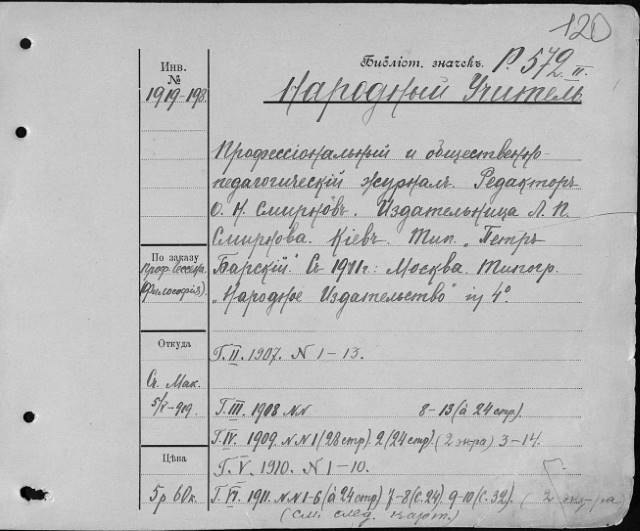 120
Библіот. значекъ. Р. 572 II.
Инв.
№
1919-198
Народный Учитель
Профессіональный и общественно-
педагогическій журналъ. Редакторъ
О. Н. Смирновъ. Издательница Л. П.
Смирнова. Кіевъ. Тип. „Петръ
По заказу
Барскій". Съ 1911г: Москва. Типогр.
(Философія).
„Народное Издательство" in 4°.
Откуда
Г. II. 1907. N 1-13.
Ст. Мак.
5/V-919.
Г. III. 1908 NN 8-13 (à 24 стр).
Г. IV. 1909. NN 1 (28 стр). 2 (24 стр). (2 экз-ра) 3-14.
Цѣна
Г. V. 1910. N 1-10.
5р 60к.
Г. VI. 1911. NN 1-6 (à 24 стр) 7-8 (с. 24). 9-10 (с. 32). (2 экз-ра
(см. след. карт.)